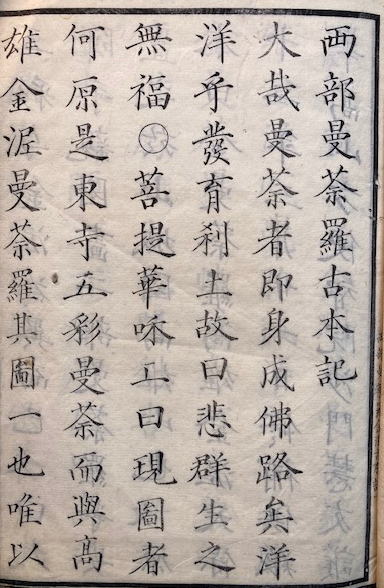 両部曼荼羅古本記
大哉曼荼者即身成佛路矣洋
洋乎發育刹土故曰悲群生之
無福〇菩提華咊上曰現圖者
何原是東寺五彩曼荼而與高
雄金泥曼荼羅其圖一也唯以